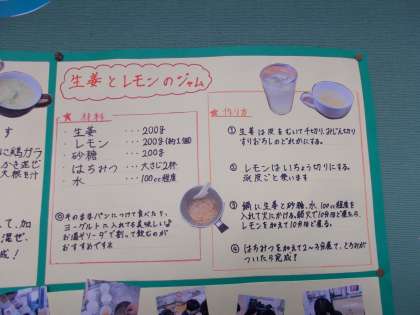 生姜とレモンのジャム
材料
・生姜 ・・・200g
・レモン ・・・200g(約1個)
・砂糖 ・・・200g
・はちみつ ・・・大さじ2杯
・水 ・・・100cc程度
◎そのままパンにつけて食べたり、
ヨーグルトに入れても美味しい♪
お湯やソーダで割って飲むのが
おすすめです☆
作り方
① 生姜は皮をむいて千切り、みじん切り
すりおろしのどれかにする。
② レモンはいちょう切りにする。
③ 鍋に生姜と砂糖、水、100cc程度を
入れて火にかける。
レモンを加えて10分ほど煮る。
④ はちみつを加えて2〜3分煮て、とろみが
ついたら完成!
す
に鶏ガラ